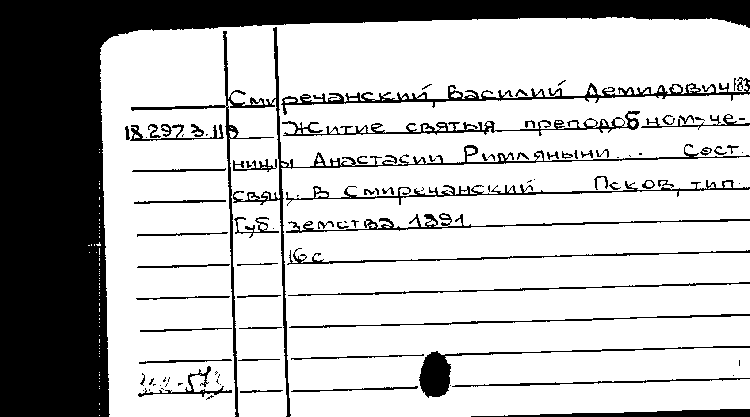 Смиречанский, Василий Демидович
18.297.3.119 Житие святыя преподобномуче-
ницы Анастасии Римляныни. Сост.
свящ. В Смиречанский. Псков, тип.
Губ. земства, 1891
16 с